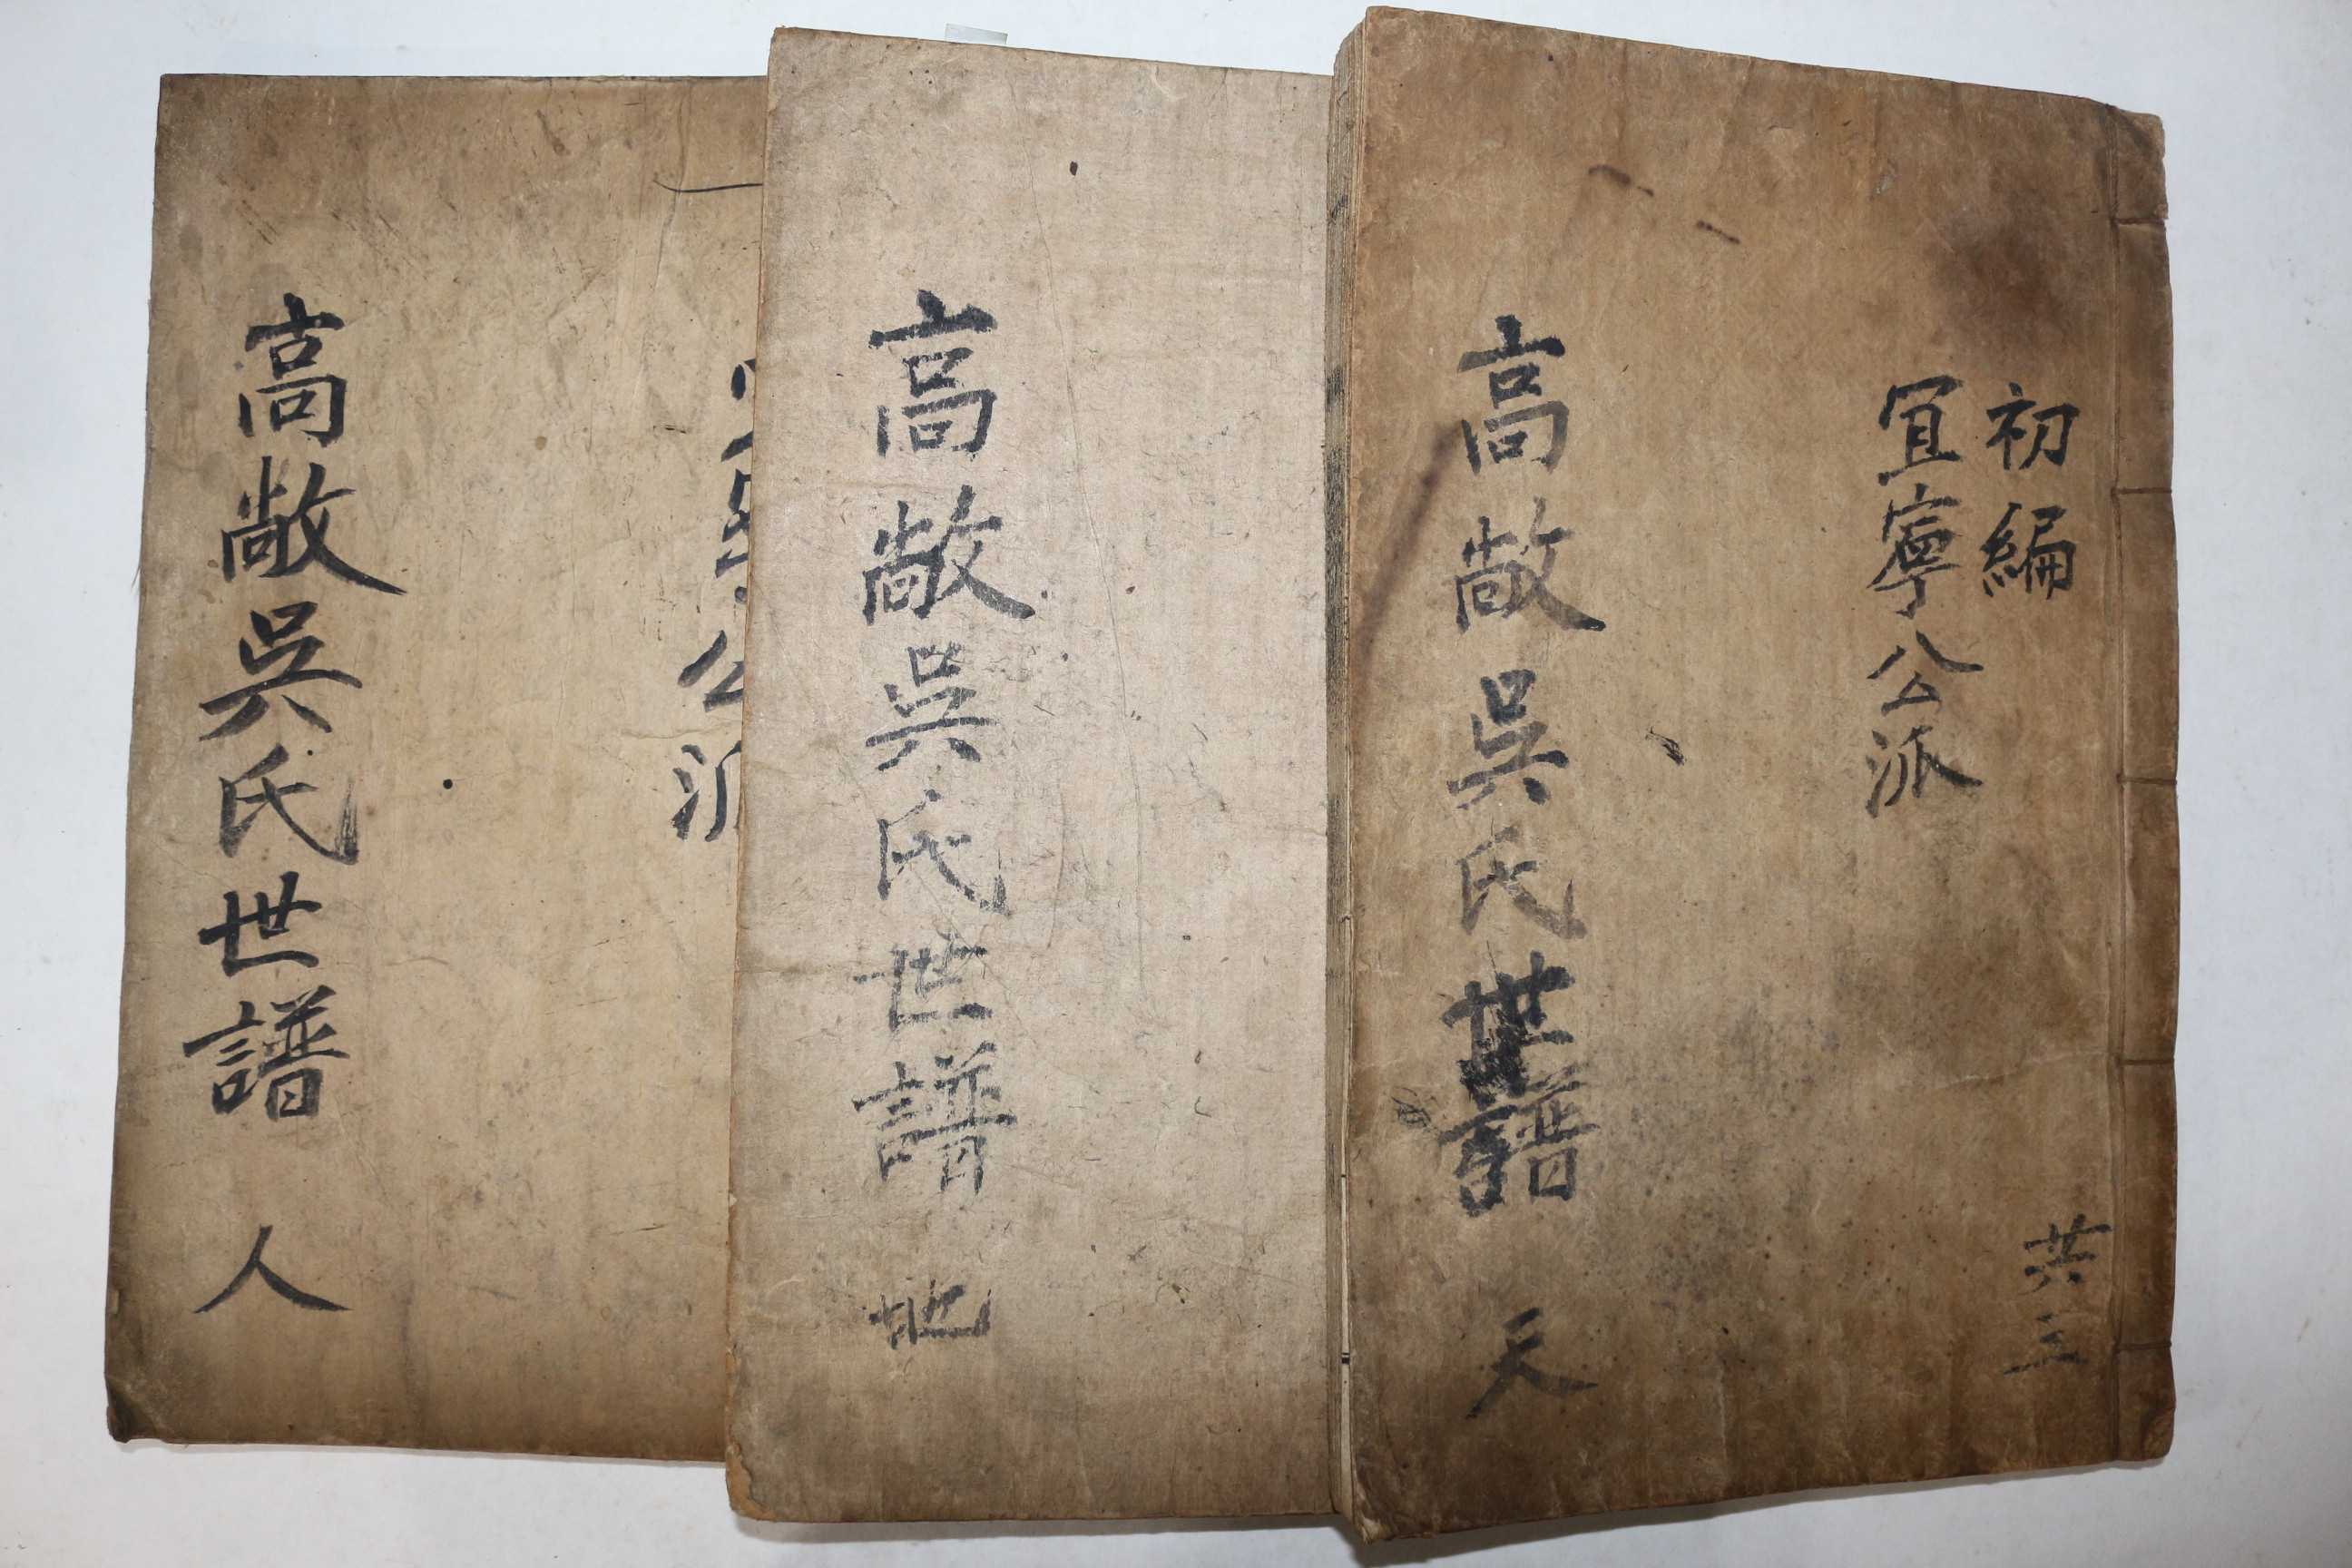 初編
冝寧公派
共三
高敞吳氏世譜 天
高敞吳氏世譜 地
公派
高敞吳氏世譜 人